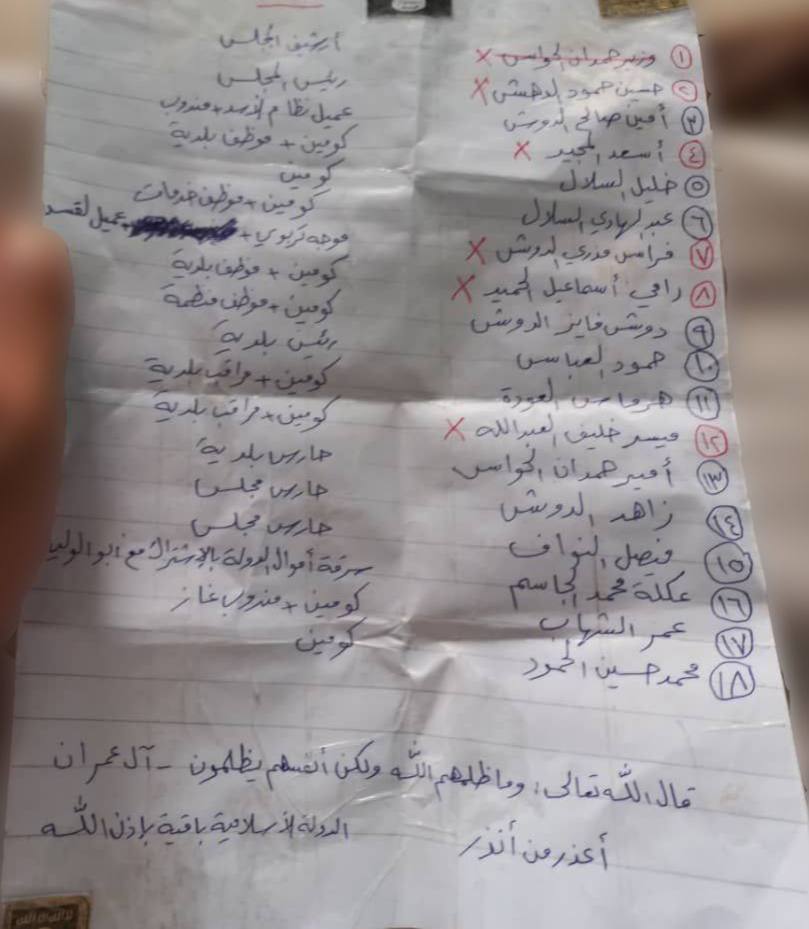 ١ وزير حمدان الحواس X أرشيف المجلس
٢ حسين حمود الدهش X رئيس المجلس
٣ أمين صالح الدوش عميل نظام الأسد + مندوب
٤ أسعد المجيد X كومين + موظف بلدية
٥ خليل السلال كومين
٦ عبد الهادي السلال كومين + موظف خدمات
٧ فراس الدوش X موجه تربوي + عميل لقسد
٨ رامي أسماعيل الحميد X كومين + موظف بلدية
٩ دوش فايز الدوش كومين + موظف منظمة
١٠ حمود العباس رئيس بلدية
١١ هرماس العودة كومين + مراقب بلدية
١٢ ميسر خليف العبدالله X كومين + مراقب بلدية
١٣ أمير حمدان الحواس حارس بلدية
١٤ زاهد الدوش حارس مجلس
١٥ فيصل النواف حارس مجلس
١٦ عكلة محمد الجاسم سرقة أموال الدولة بالإشتراك مع ابو الوليد
١٧ عمر الشهاب كومين + مندوب غاز
١٨ محمد حسين الحمود كومين
قال الله تعالى: وما ظلمهم الله ولكن أنفسهم يظلمون - آل عمران
أعذر من أنذر الدولة الأسلامية باقية بإذن الله